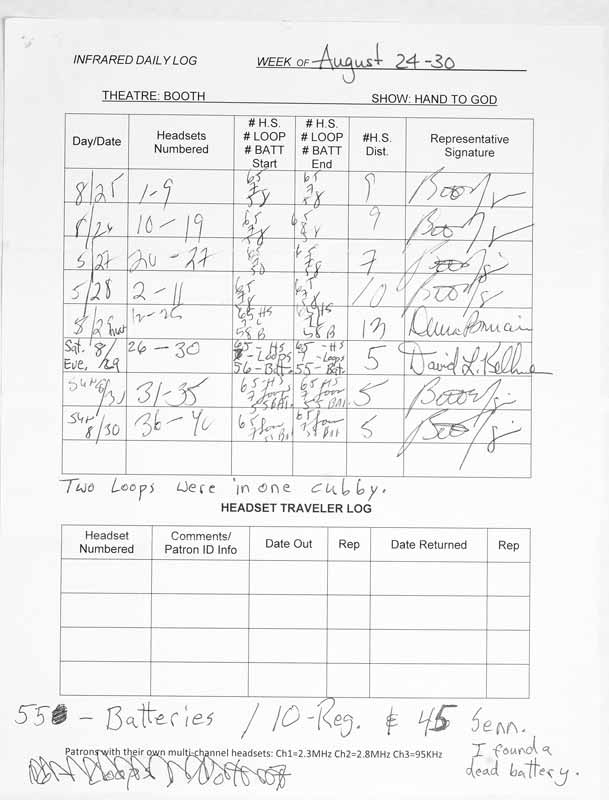 INFRARED DAILY LOG WEEK OF August 24-30
THEATRE: BOOTH SHOW: HAND TO GOD
Day/Date Headsets Numbered # H.S. # LOOP # BATT Start # H.S. # LOOP # BATT End #H.S. Dist. Representative Signature
8/25 1-9 65 7 58 65 7 58 9
8/26 10-19 65 7 58 65 7 58 9
8/27 20-27 65 7 58 65 7 58 7
8/28 2-11 65 7 58 65 7 58 10
8/29 12-25 65 HS 7 L 58 B 58 B 13
Sat. 8/29 Eve, 26-30 65-HS 7-Loops 56-Batt. 65-HS 7-Loops 55-Bat. 5 David L.
31-35 65 HS 7 55 Batt 65 HS 7 55 Batt 5
8/30 36-40 65 7 65 7 5
Two Loops were in one cubby.
HEADSET TRAVELER LOG
Headset Numbered Comments/ Patron ID Info Date Out Rep Date Returned Rep
55 - Batteries / 10-Reg. & 45 Senn.
I found a
dead battery.
Patrons with their own multi-channel headsets: Ch1=2.3MHz Ch2=2.8MHz Ch3=95KHz